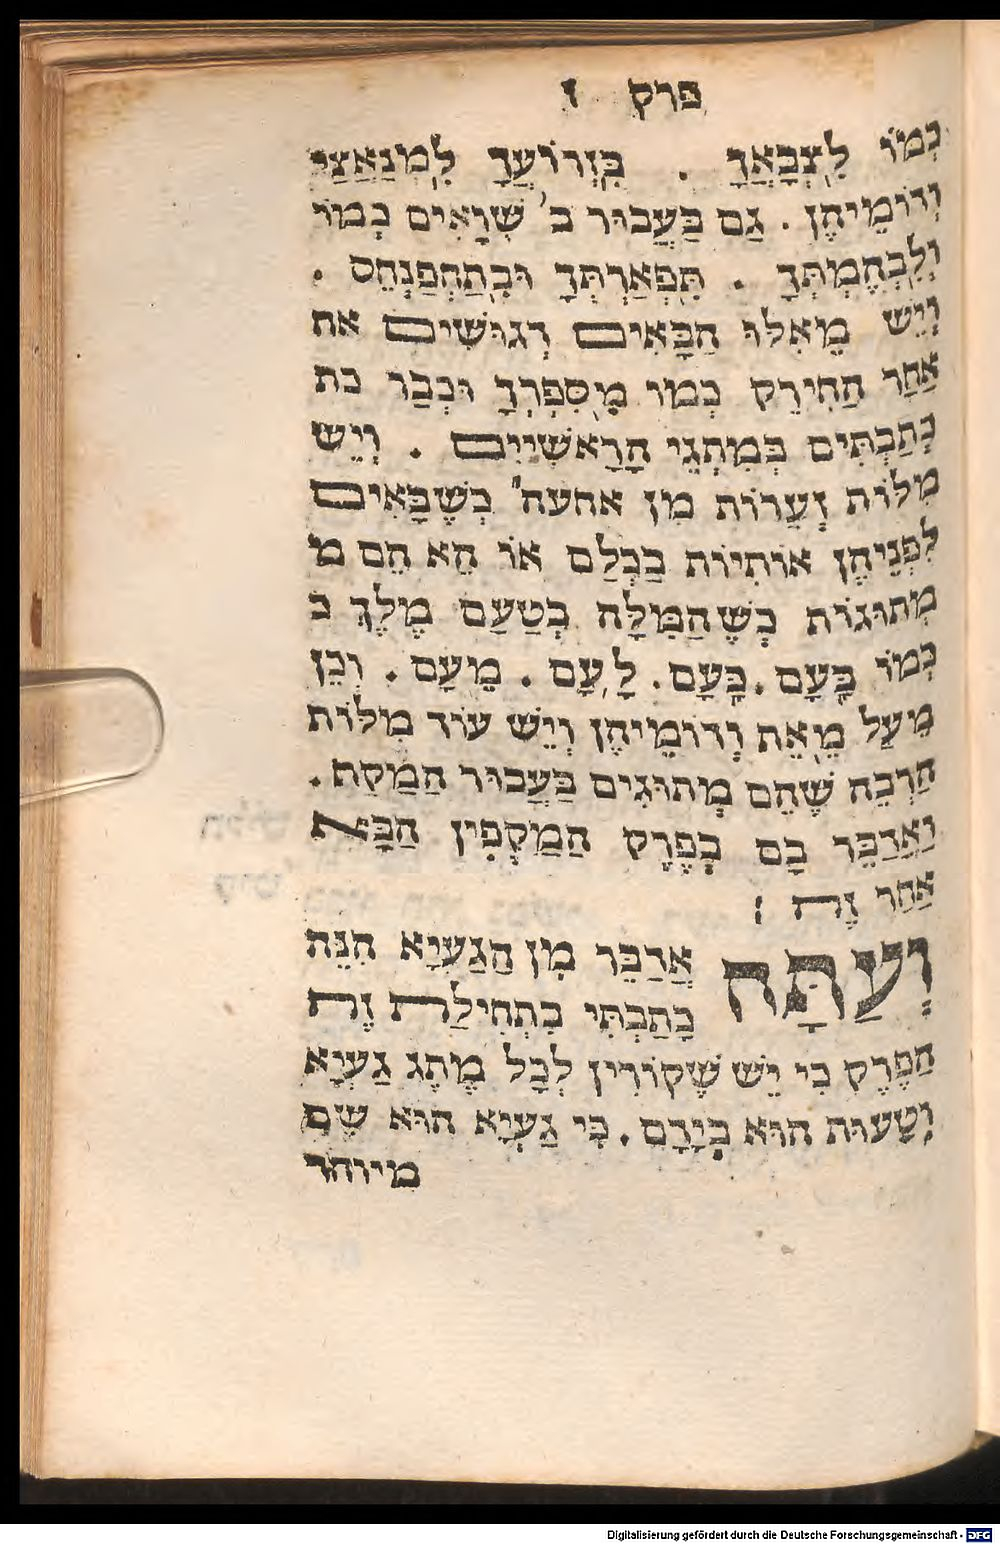 פרק ז
כְּמוֹ לְצְבָאֲךָ . כִּזְרוֹעֲךָ לִמְנַאֲצַי
וְדוֹמֵיהֶן . גַם בַּעֲבוּר ב' שְׁוָאִים כְּמוֹ
וְלִבְהֶמְתְּךָ . תִּפְאַרְתְּךָ וּבְתַחְפַּנְחֵס .
וְיֵשׁ מֵאֵלּוּ הַבָּאִים דְגוּשִׁים את
אַחַר הַחִירֵק כְּמוֹ מִסִּפְרְךָ וּכְבַר כת
כְּתַבְתִּים בְּמִתְגֵי הָרָאשִׁיִים . וְיֵשׁ
מִלּוֹת זְעֵרוֹת מִן אהעח' כְּשֶׁבָּאִים
לִפְנֵיהֶן אוֹתִיוֹת בַּכְלַם אוֹ הֵא הֵם מ
מְתוּגוֹת כְּשֶׁהַמִּלָּה בְּטַעַם מֶלֶךְ כ
כְּמוֹ בָּעָם . כָּעָם . לָעָם . מֵעָם . וְכֵן
מֵעַל מֵאֵת וְדוֹמֵיהֶן וְיֵשׁ עוֹד מִלּוֹת
הַרְבֵּה שֶׁהֵם מְתוּגִים בַּעֲבוּר הַמַקֵף .
וַאֲדַבֵּר בָּם בְּפֶרֶק הַמַקְפִין הַבָּא
אַחַר זֶה :
וְעַתָּה אֲדַבֵּר מִן הַגַּעְיָא הִנֵּה
כָּתַבְתִּי בִּתְחִילַת זֶה
הַפֶּרֶק כִּי יֵשׁ שֶׁקוֹרִין לְכָל מֶתֶג גַּעְיָא
וְטָעוּת הוּא בְּיָדָם . כִּי גַּעְיָא הוּא שֵׁם
מיוחד
Digitalisierung gefördert durch die Deutsche Forschungsgemeinschaft - DFG